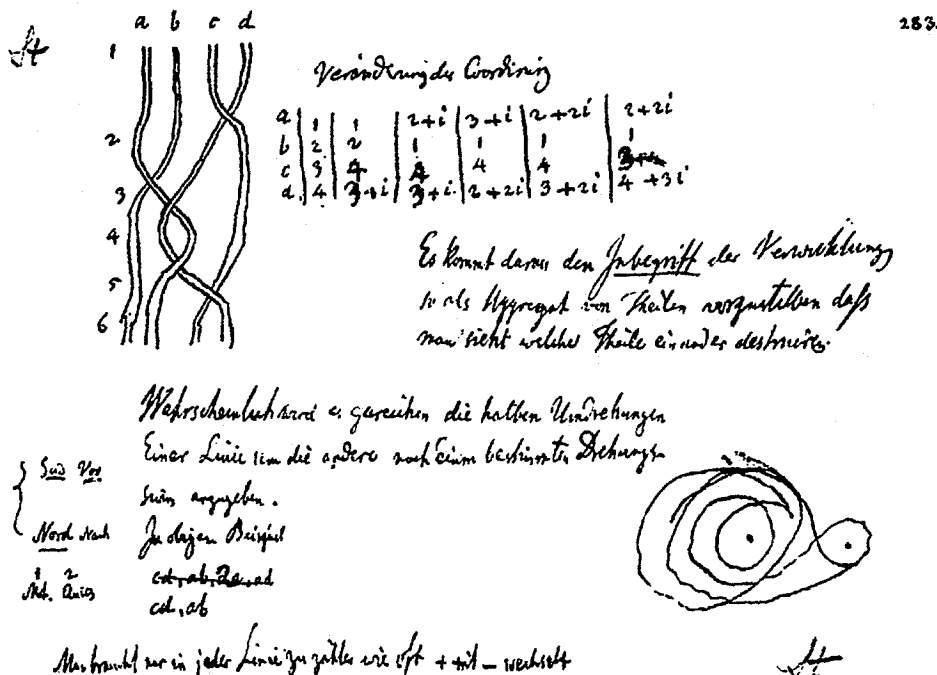 283.
a b c d
1
2
3
4
5
6
Veränderung der Coordinirung
a | 1 | 1 | 2+i | 3+i | 2+2i | 2+2i
b | 2 | 2 | 1 | 1 | 1 | 1
c | 3 | 4 | 4 | 4 | 4 | 3
d. | 4 | 3+i | 3+i. | 2+2i | 3+2i | 4+3i
Es kommt darauf den Inbegriff der Verwicklung
so als Aggregat von Theilen vorzustellen daß
man sieht welche Theile einander destruiren.
Wahrscheinlich wird es gereichen die halben Umdrehungen
Einer Linie um die andere nach einem bestimmten Drehungs-
sinn anzugeben.
Süd Vor
Nord Nach
In obigen Beispiel
1 2
cd, ab, ad
cd, ab
Man braucht nur in jeder Linie zu zählen wie oft + mit – wechselt